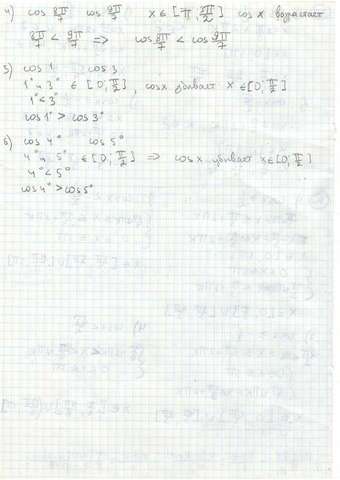 4) cos 8π/7 cos 9π/7 x ∈ [π; 3π/2] cos x возрастает
8π/7 < 9π/7 => cos 8π/7 < cos 9π/7
5) cos 1 cos 3
1° и 3° ∈ [0; π/2], cosx убывает x∈[0; π/2]
1° < 3°
cos 1° > cos 3°
6) cos 4° cos 5°
4° и 5° ∈ [0; π/2] => cosx убывает x∈[0; π/2]
4° < 5°
cos4° > cos5°